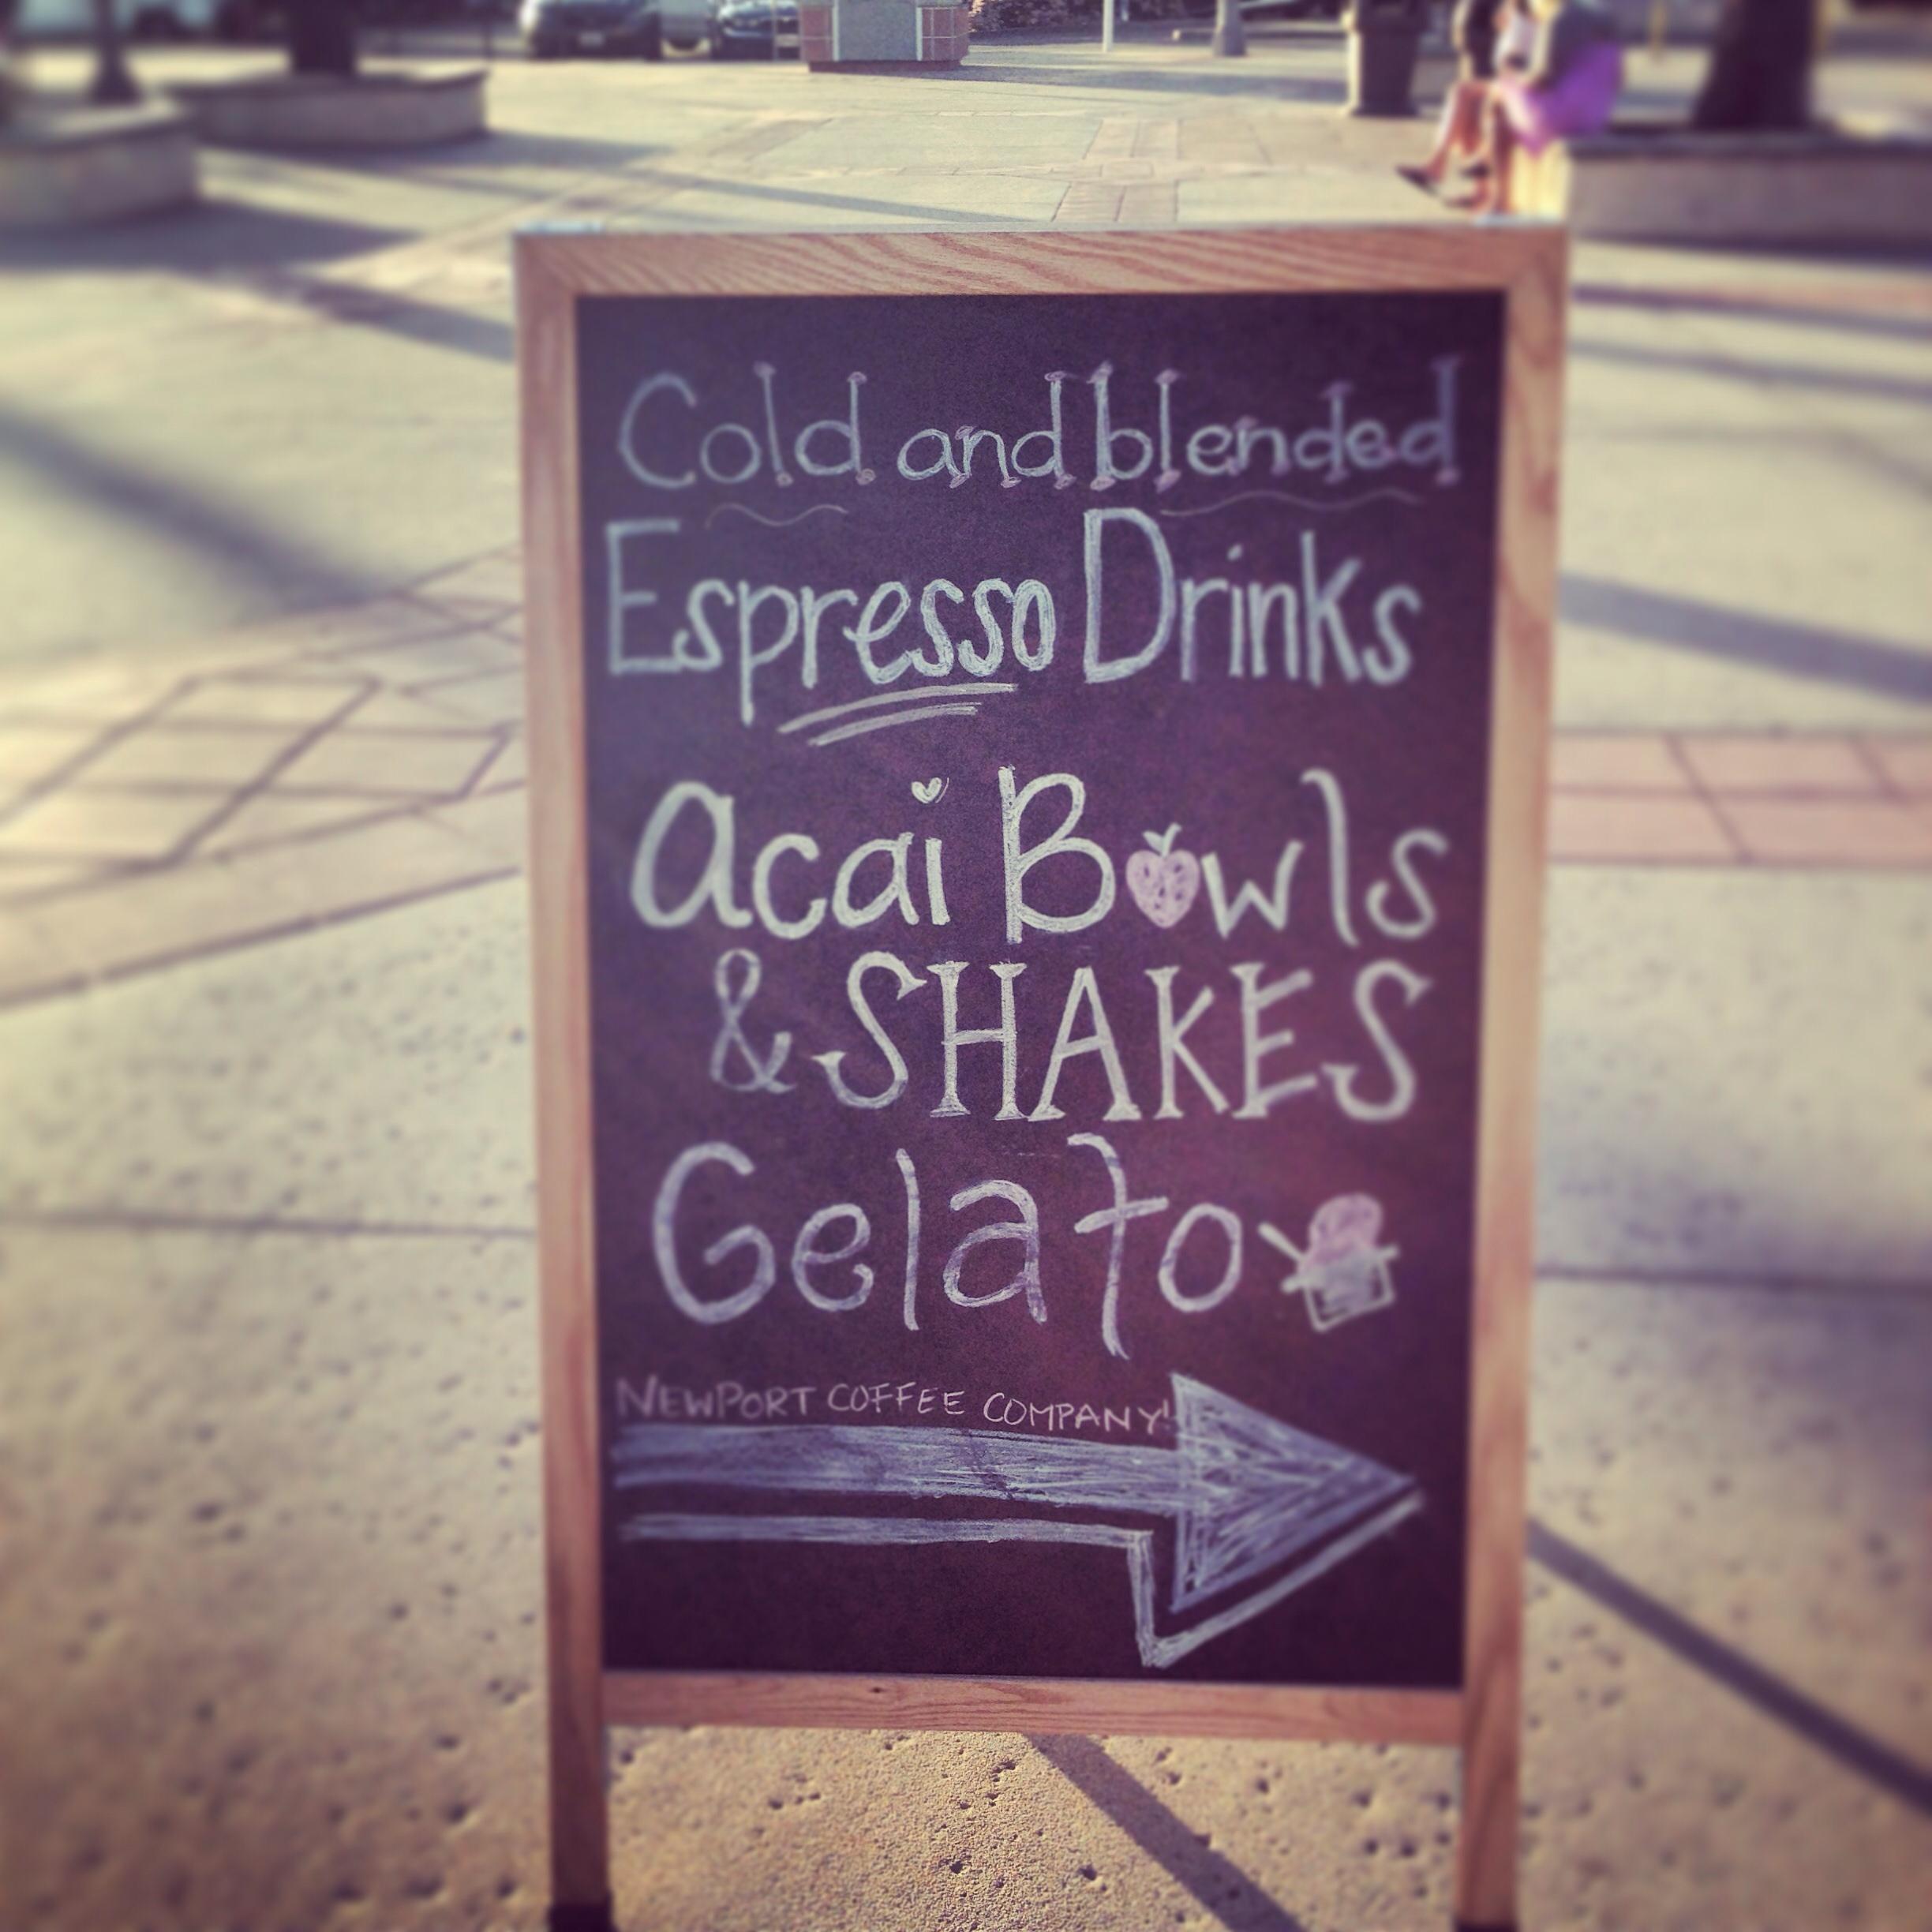 Cold and blended
Espresso Drinks
Acai Bowls
& SHAKES
Gelato
NEWPORT COFFEE COMPANY!